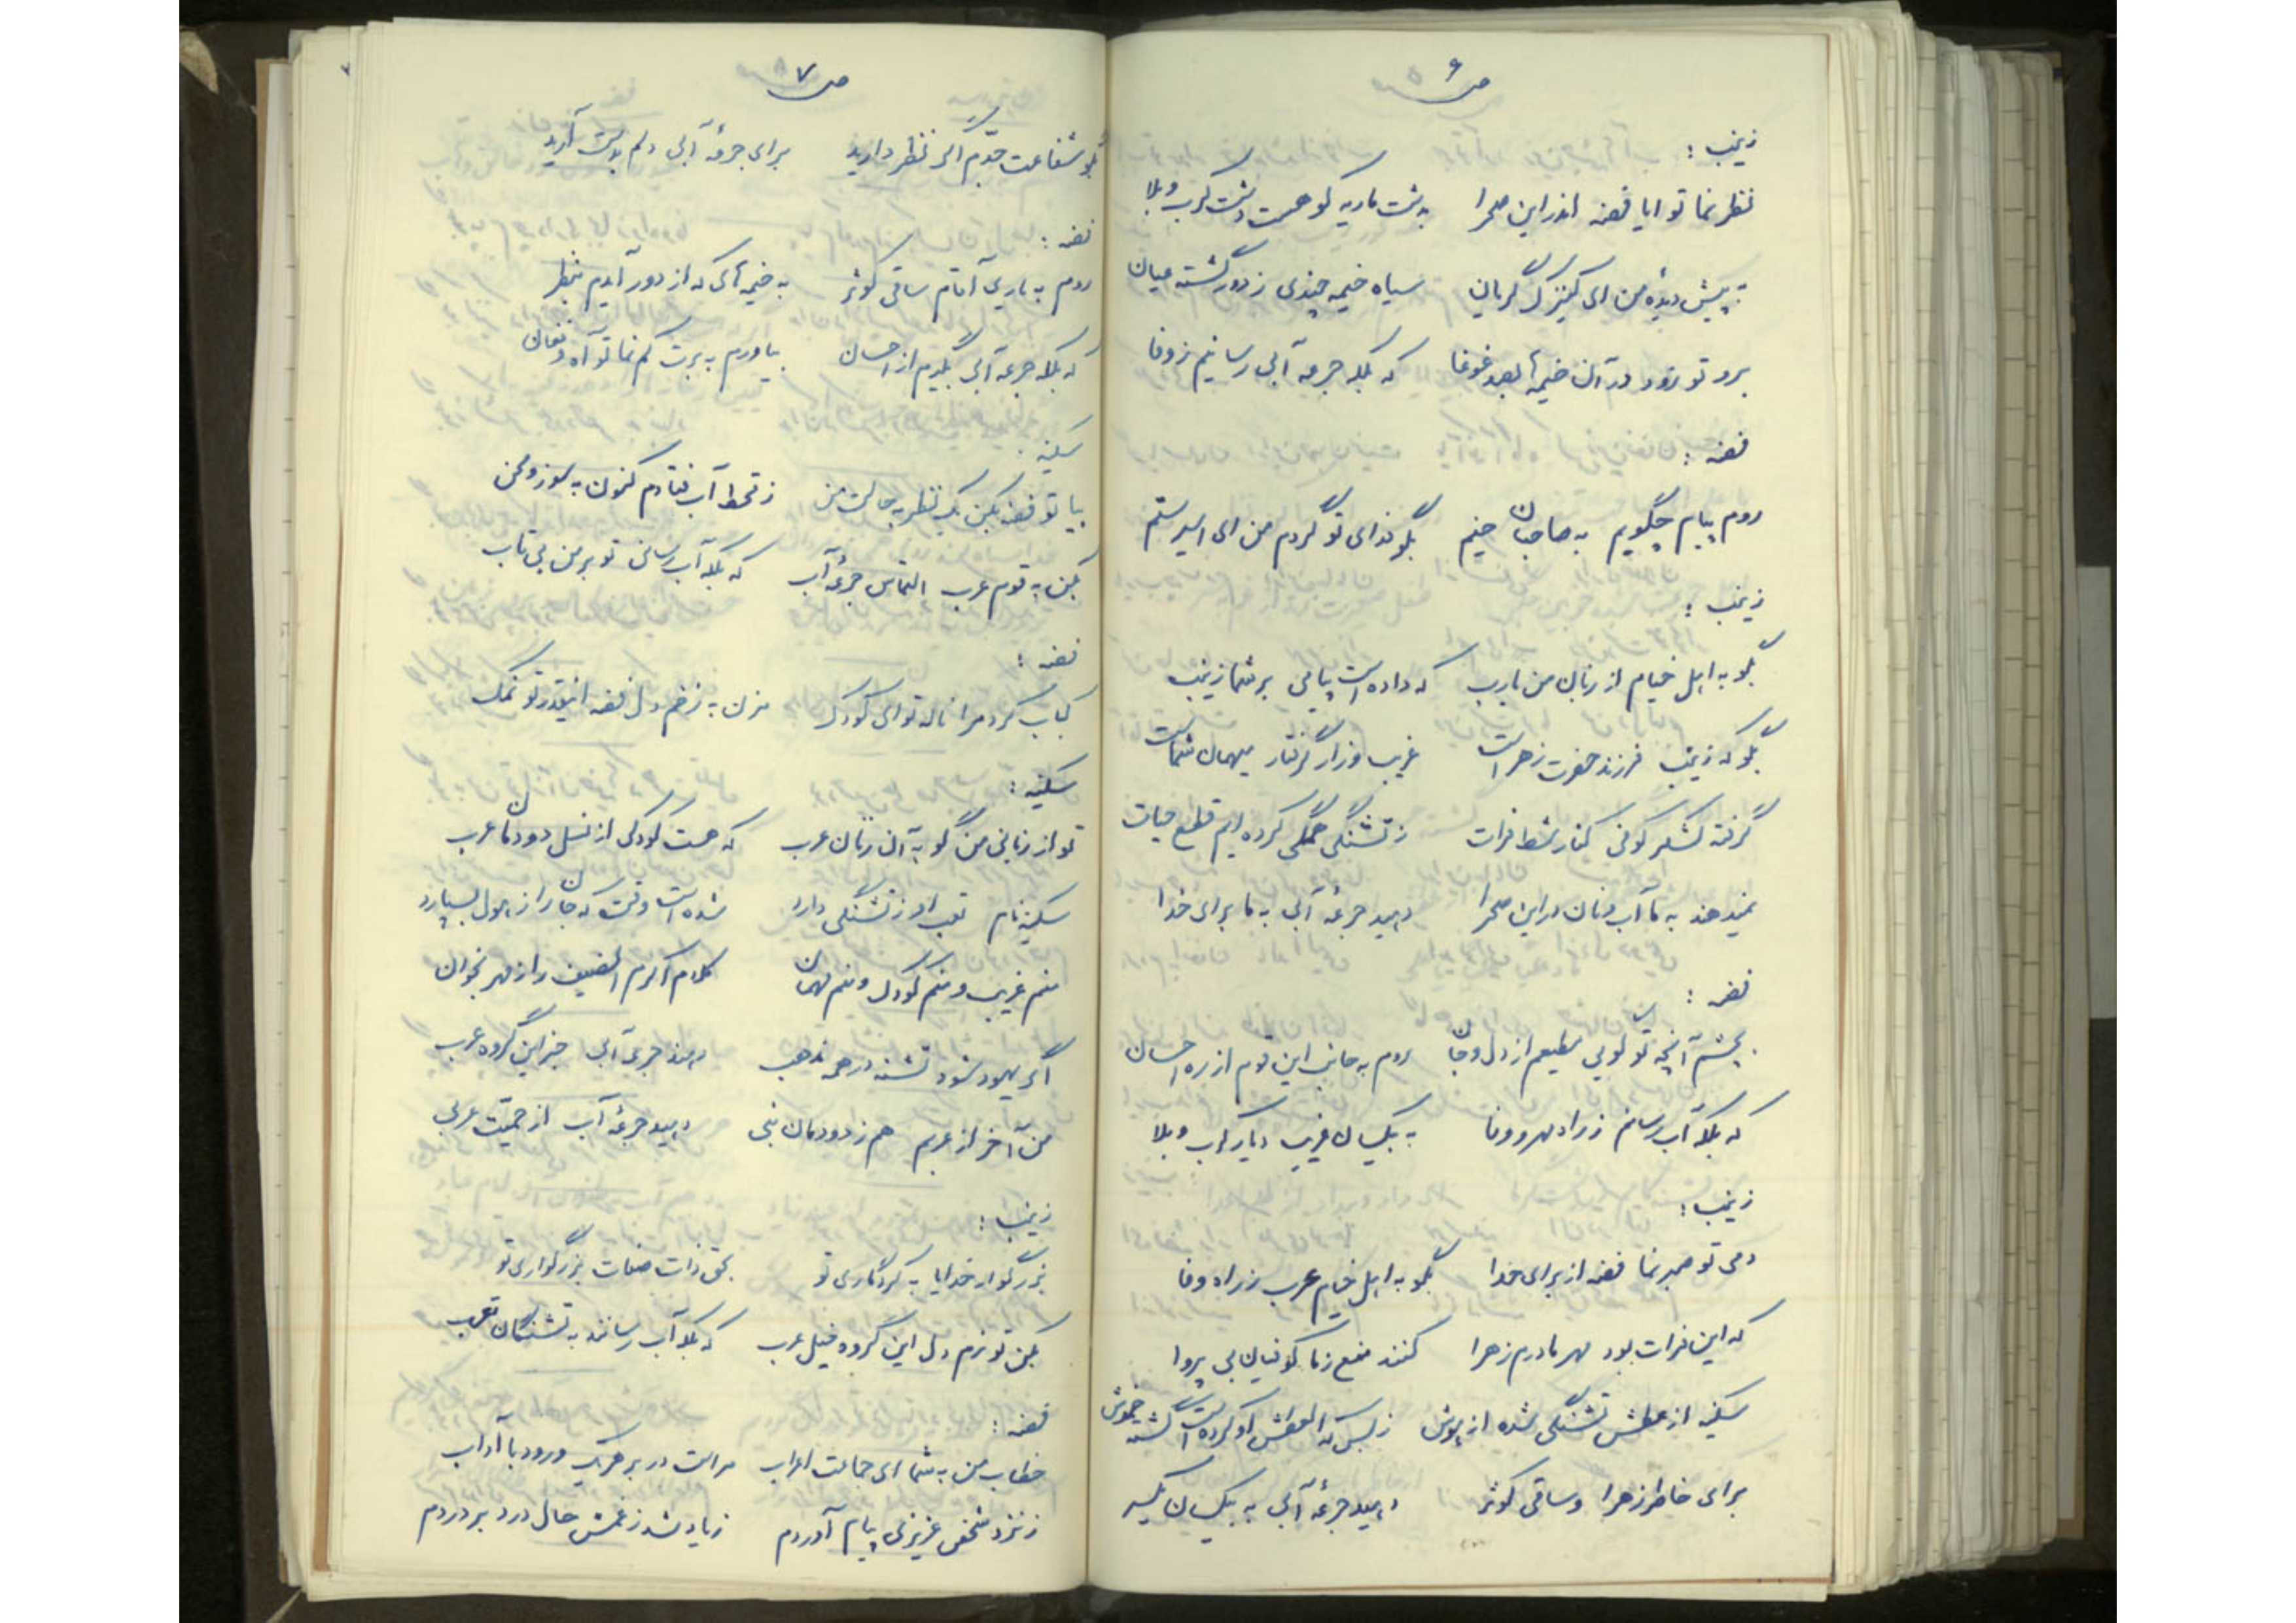 ص ۶
زینب :
نظر نما تو ایا فضه اندر این صحرا به دشت ماریه کو هست دشت کرب و بلا
به پیش دیده من ای کنیزک گریان سیاه خیمه چندی ز دور گشته عیان
برو تو زود در آن خیمه‌ها بصد غوغا که بلکه جرعه آبی رسانیم ز وفا
فضه :
روم پیام چگویم به صاحبان خیم بگو فدای تو گردم من ای اسیر ستم
زینب :
بگو به اهل خیام از زبان من یارب که داده است پیامی بر شما زینب
بگو که زینب فرزند حضرت زهراست غریب و زار گرفتار میهمان شماست
گرفته لشکر کوفی کنار شط فرات ز تشنگی همگی کرده‌ایم قطع حیات
نمیدهند به ما آب و نان در این صحرا دهید جرعه آبی به ما برای خدا
فضه :
بچشم آنچه تو گویی مطیعم از دل و جان روم به جانب این قوم از ره احسان
که بلکه آب رسانم ز راه مهر و وفا به بیکسان غریب دیار کرب و بلا
زینب :
دمی تو صبر نما فضه از برای خدا بگو به اهل خیام عرب ز راه وفا
که این فرات بود مهر مادرم زهرا کنند منع ز ما کوفیان بی پروا
سکینه از عطش تشنگی شده از هوش ز بس که العطش او کرده است گشته خموش
برای خاطر زهرا و ساقی کوثر دهید جرعه آبی به بیکسان یکسر
ص ۷
بگو شفاعت جدم اگر نظر دارید برای جرعه آبی دلم بدست آرید
فضه :
روم به یاری آقام ساقی کوثر به خیمه‌هایی که از دور آیدم بنظر
که بلکه جرعه آبی بگیرم از احسان بیاورم به برت کم نما تو آه و فغان
سکینه :
بیا تو فضه بکن یک نظر به حالت من ز قحط آب فتادم کنون به سوز و محن
بکن به قوم عرب التماس جرعه آب که بلکه آب رسانی تو بر من بی تاب
فضه :
کباب کرد مرا ناله تو ای کودک مزن به زخم دل فضه اینقدر تو نمک
سکینه :
تو از زبانی من گو به آن زنان عرب که هست کودکی از نسل دودمان عرب
سکینه نام تعب او ز تشنگی دارد شده است وقت که جان را از هول بسپارد
منم غریب و منم کودک و منم مهمان کلام اکرم الضیف را از مهر بخوان
اگر یهود شود تشنه در همه مذهب دهند جرعه آبی جز این گروه عرب
من آخر از عربم هم ز دودمان نبی دهید جرعه آب از حمیت عربی
زینب :
بزرگوار خدایا به کردگاری تو بحق ذات صفات بزرگواری تو
بکن تو نرم دل این گروه خیل عرب که بلکه آب رسانند به تشنگان تعب
فضه :
خطاب من به شما ای جماعت اعراب مراست در بر هر یک درود با آداب
ز نزد شخص عزیزی پیام آوردم زیاد شد ز غمش حال درد بر دردم